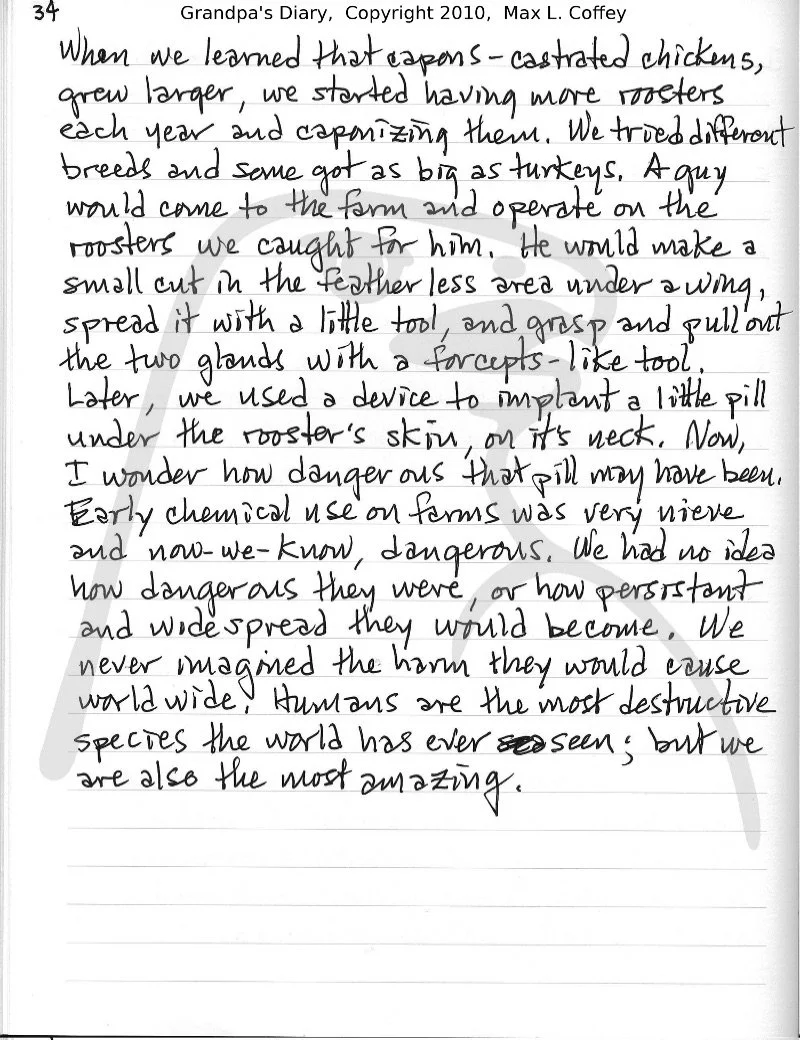 34
Grandpa's Diary, Copyright 2010, Max L. Coffey
When we learned that capons-castrated chickens,
grew larger, we started having more roosters
each year and caponizing them. We tried different
breeds and some got as big as turkeys. A guy
would come to the farm and operate on the
roosters we caught for him. He would make a
small cut in the featherless area under a wing,
spread it with a little tool, and grasp and pull out
the two glands with a forcepts-like tool.
Later, we used a device to implant a little pill
under the rooster's skin, on it's neck. Now,
I wonder how dangerous that pill may have been.
Early chemical use on farms was very nieve
and now-we-know, dangerous. We had no idea
how dangerous they were, or how persistant
and widespread they would become. We
never imagined the harm they would cause
world wide! Humans are the most destructive
species the world has ever seen; but we
are also the most amazing.